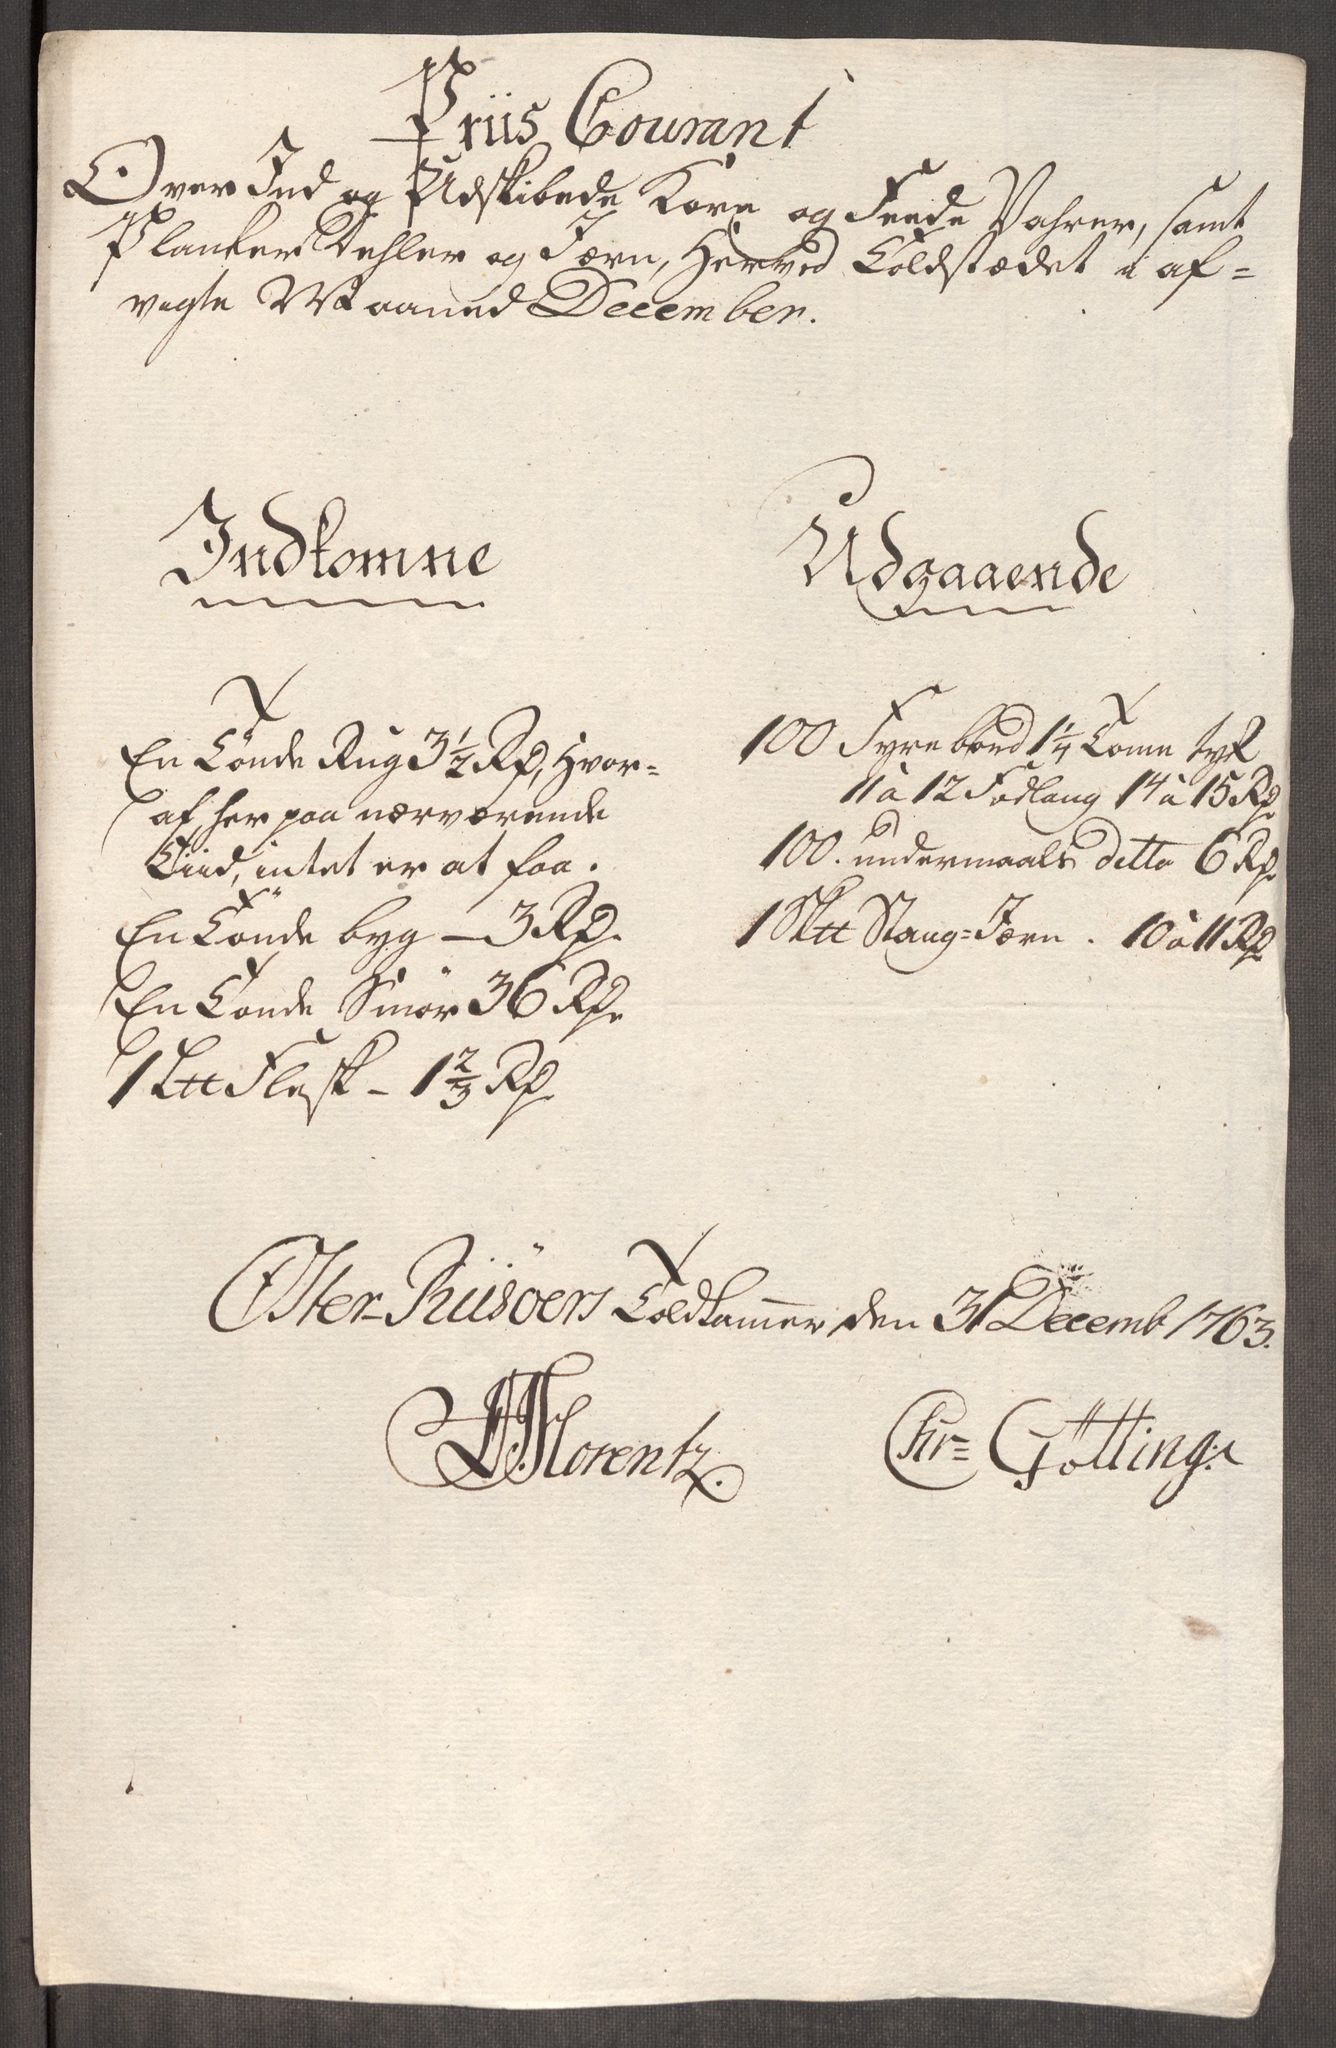 Priis Courant
Over Ind og Udskibede Korn og Feede Vahrer, samt
Planker Dehler og Jærn, Herved Toldstædet i af=
vigte Maaned December.
Indkomne
En Tönde Rug 3 1/2 Rd, hvor=
af her paa nærværende
Tiid, intet er at faa.
En Tönde byg — 3 Rd.
En Tönde Smör 36 Rd.
1 L℔ Flesk – 1 2/3 Rd.
Udgaaende
100 Fyrebord 1 1/4 Tomme tyk
11 à 12 Fodlang 14 à 15 Rd
100. undermaals ditto 6 Rd.
1 Sk℔ Stang=Jærn. 10 à 11 Rd
Öster-Riisöers Toldkammer den 31 Decemb 1763.
Lorentz.
Chr= Götting.